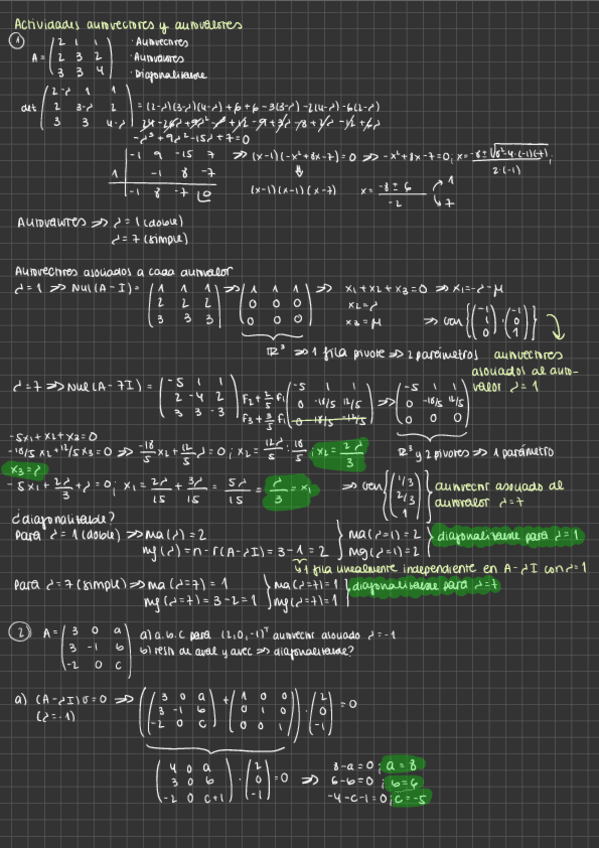 Actividades autovectores y autovalores
① A = (2 1 1 / 2 3 2 / 3 3 4) · Autovectores · Autovalores · Diagonalizable
det (2-λ 1 1 / 2 3-λ 2 / 3 3 4-λ) = (2-λ)(3-λ)(4-λ)+6+6-3(3-λ)-2(4-λ)-6(2-λ)
-λ³+9λ²-15λ+7=0
-1 9 -15 7 ⇒ (x-1)(-x²+8x-7)=0 ⇒ -x²+8x-7=0; x = (-8±√(8²-4·(-1)(-7)))/(2·(-1));
1 -1 8 -7
-1 8 -7 0 (x-1)(x-1)(x-7) x = (-8±6)/-2 → 1 → 7
Autovalores ⇒ λ=1 (doble)
λ=7 (simple)
Autovectores asociados a cada autovalor
λ=1 ⇒ Nul(A-I) = (1 1 1 / 2 2 2 / 3 3 3) ⇒ (1 1 1 / 0 0 0 / 0 0 0) ⇒ x₁+x₂+x₃=0 ⇒ x₁=-λ-μ
x₂=λ
x₃=μ ⇒ Gen{(-1 1 0), (-1 0 1)}
ℝ³ ⇒ 1 fila pivote ⇒ 2 parámetros autovectores asociados al autovalor λ=1
λ=7 ⇒ Nul(A-7I) = (-5 1 1 / 2 -4 2 / 3 3 -3) F₂+2/5 F₁ F₃+3/5 F₁ (-5 1 1 / 0 -18/5 12/5 / 0 18/5 -12/5) ⇒ (-5 1 1 / 0 -18/5 12/5 / 0 0 0)
-5x₁+x₂+x₃=0
-18/5 x₂+12/5 x₃=0 ⇒ -18/5 x₂+12/5 λ=0; x₂ = 12λ/5 : 18/5; x₂ = 2λ/3 ℝ³ y 2 pivotes ⇒ 1 parámetro
x₃=λ
-5x₁+2λ/3+λ=0; x₁ = 2λ/15 + 3λ/15 = 5λ/15 = λ/3 = x₁ ⇒ Gen{(1/3 2/3 1)} autovector asociado al autovalor λ=7
¿diagonalizable?
Para λ=1 (doble) ⇒ ma(λ)=2 } ma(λ=1)=2 } diagonalizable para λ=1
mg(λ)=n-r(A-λI)=3-1=2 } mg(λ=1)=2
↳ 1 fila linealmente independiente en A-λI con λ=1
Para λ=7 (simple) ⇒ ma(λ=7)=1 } ma(λ=7)=1 } diagonalizable para λ=7
mg(λ=7)=3-2=1 } mg(λ=7)=1
② A = (3 0 a / 3 -1 b / -2 0 c) a) a,b,c para (2,0,-1)ᵀ autovector asociado λ=-1
b) resto de aval y avec ⇒ diagonalizable?
a) (A-λI)v=0 ⇒ ((3 0 a / 3 -1 b / -2 0 c) + (1 0 0 / 0 1 0 / 0 0 1)) · (2 0 -1) = 0
(λ=-1)
(4 0 a / 3 0 b / -2 0 c+1) · (2 0 -1) = 0 ⇒ 8-a=0; a=8
6-b=0; b=6
-4-c-1=0; c=-5